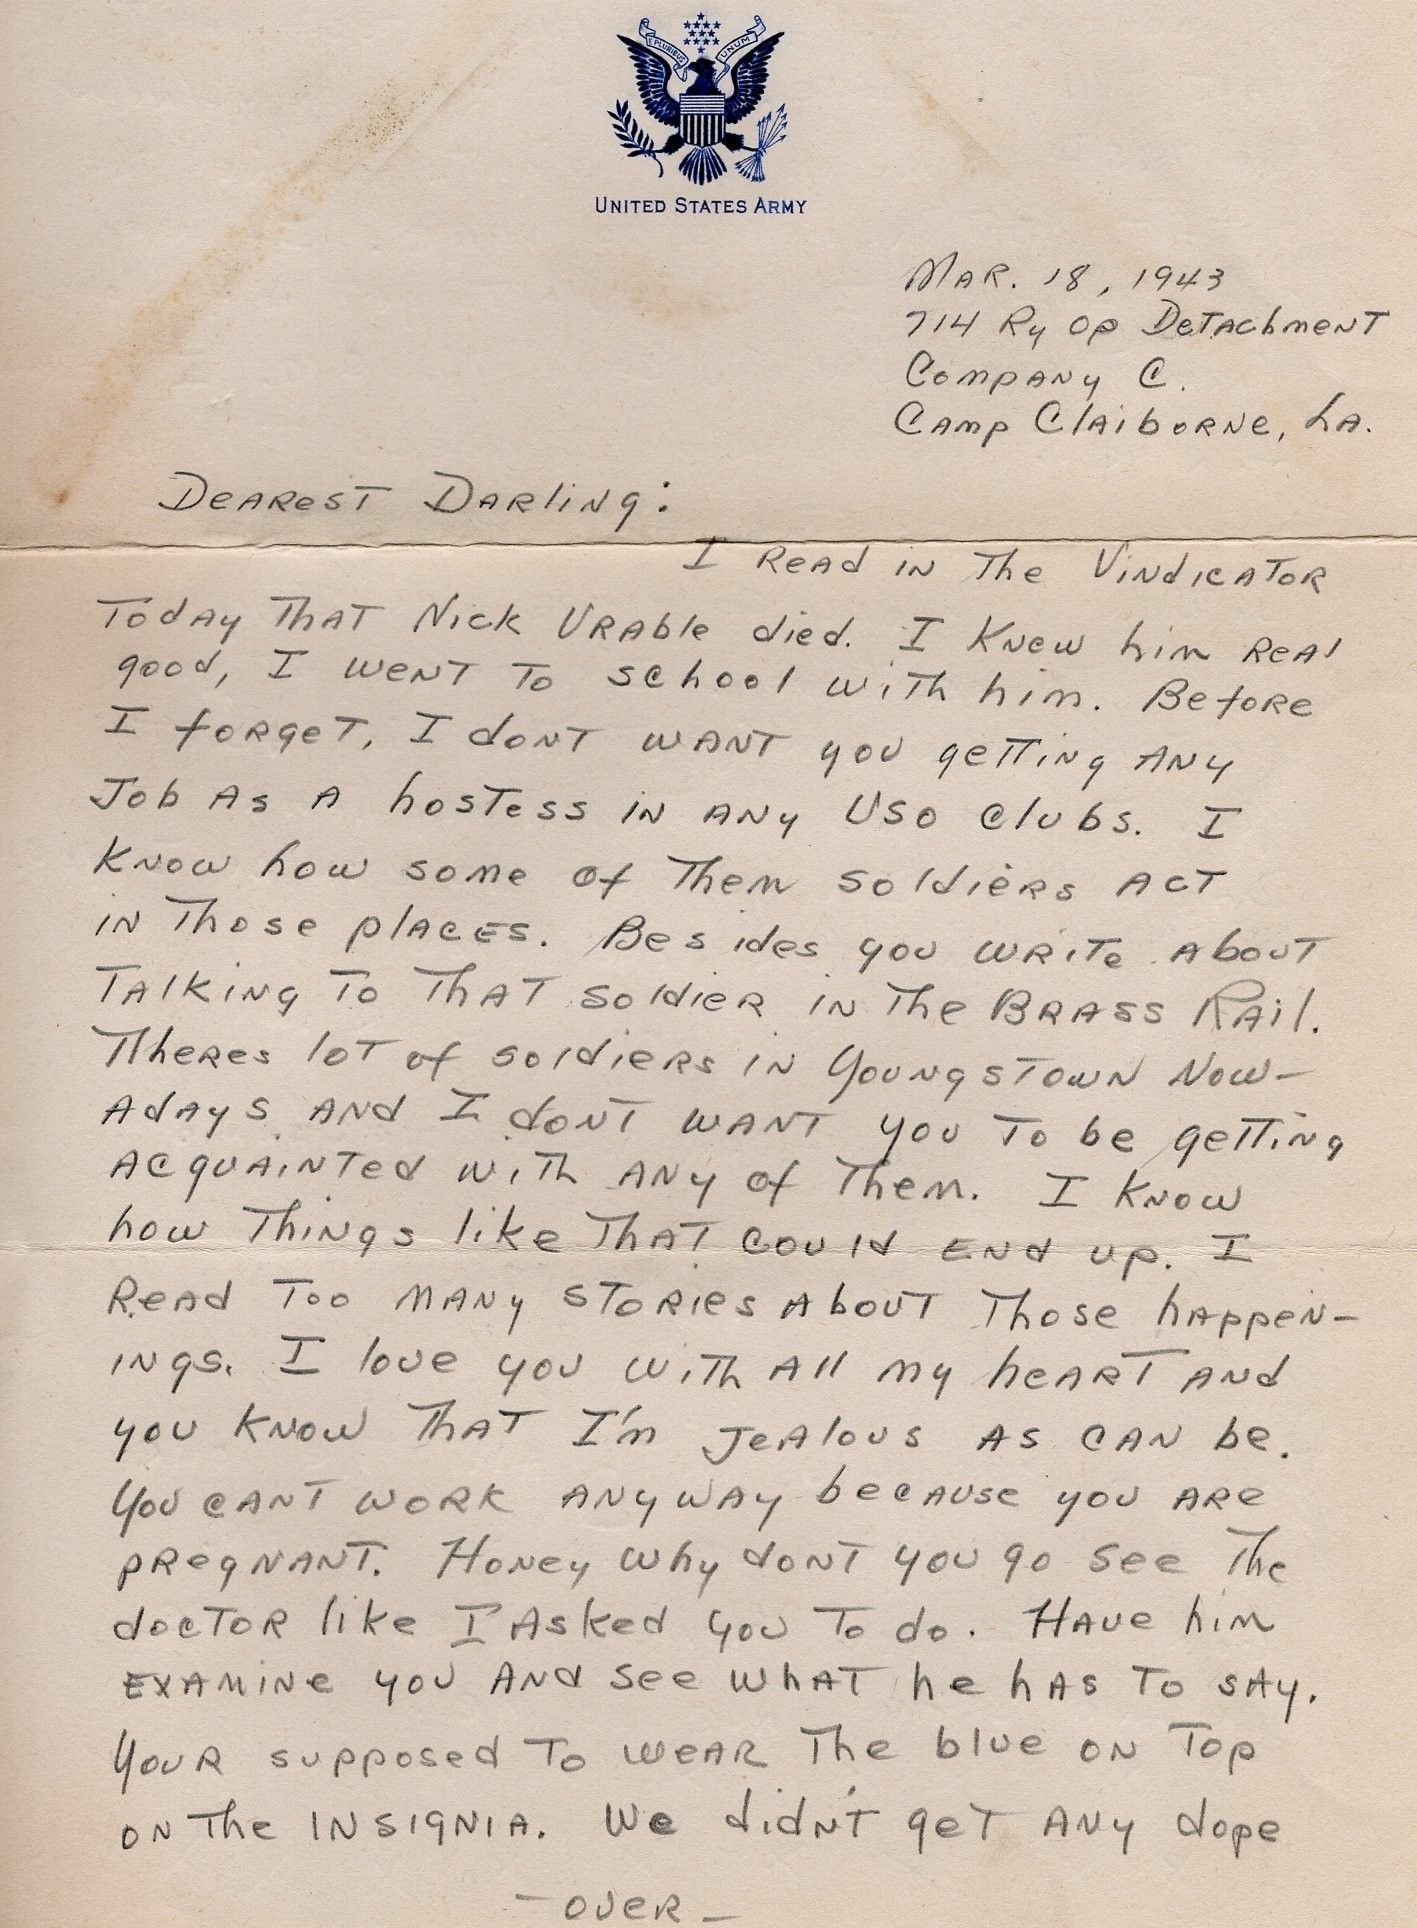 E PLURIBUS UNUM
UNITED STATES ARMY
MAR. 18, 1943
714 Ry Op Detachment
Company C.
Camp Claiborne, La.
Dearest Darling:
I read in the Vindicator
today that Nick Urable died. I knew him real
good, I went to school with him. Before
I forget, I dont want you getting any
job as a hostess in any USO clubs. I
know how some of them soldiers act
in those places. Besides you write about
talking to that soldier in the Brass Rail.
Theres lot of soldiers in Youngstown now-
adays and I dont want you to be getting
acquainted with any of them. I know
how things like that could end up. I
read too many stories about those happen-
ings. I love you with all my heart and
you know that I'm jealous as can be.
You cant work anyway because you are
pregnant. Honey why dont you go see the
doctor like I asked you to do. Have him
examine you and see what he has to say.
Your supposed to wear the blue on top
on the insignia. We didn't get any dope
- over -